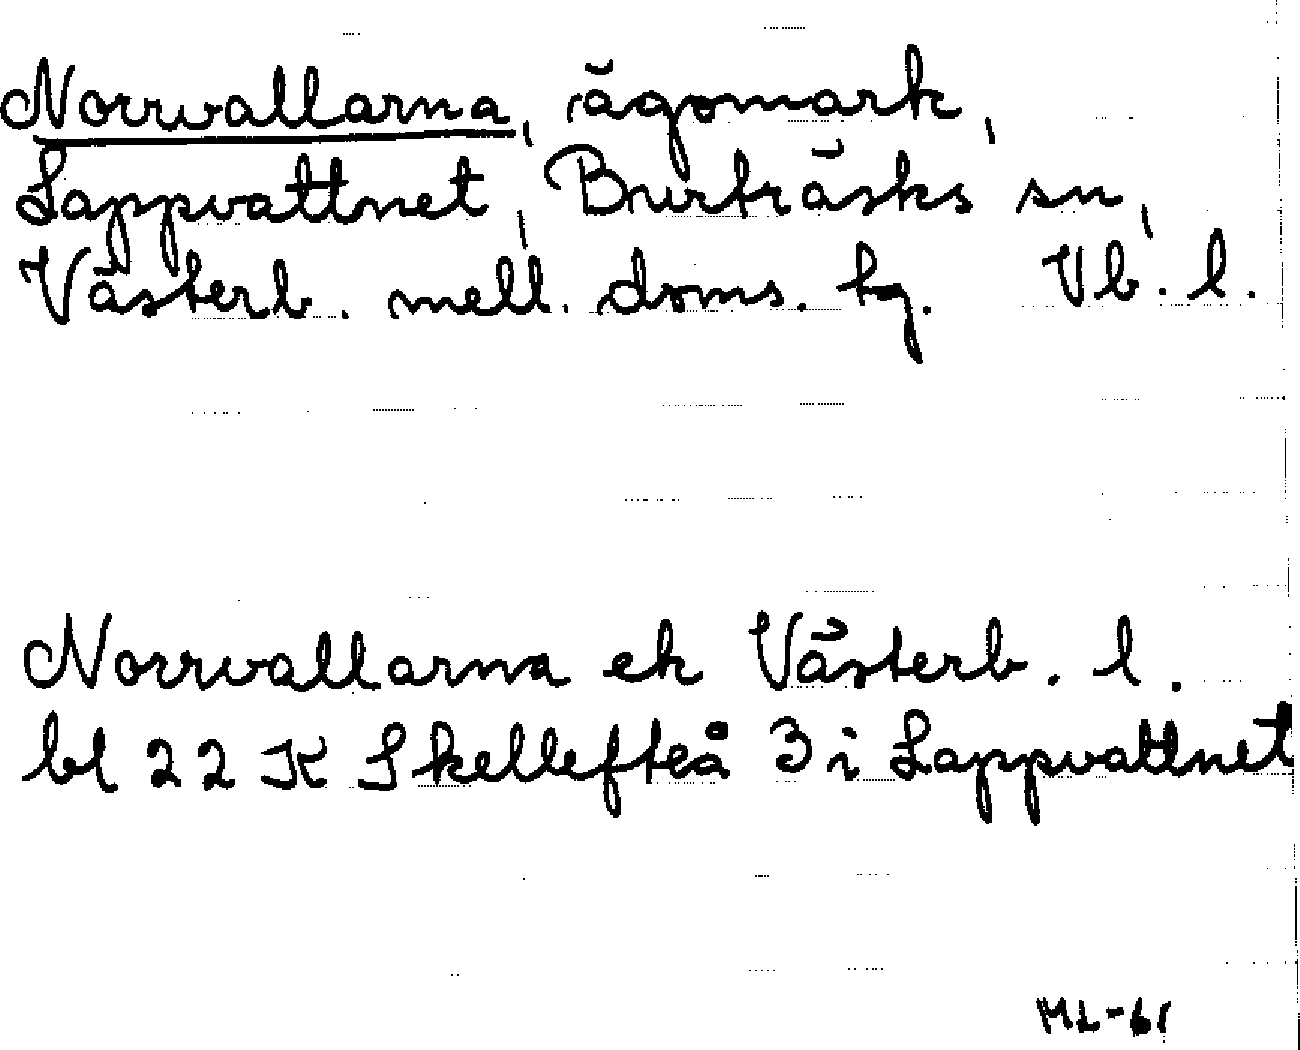 Norrvallarna, ägomark,
Lappvattnet, Burträsks sn,
Västerb. mell. doms. tg. Vb. l.
Norrvallarna ek Västerb. l.
bl 22 K Skellefteå 3 i Lappvattnet
ML-61